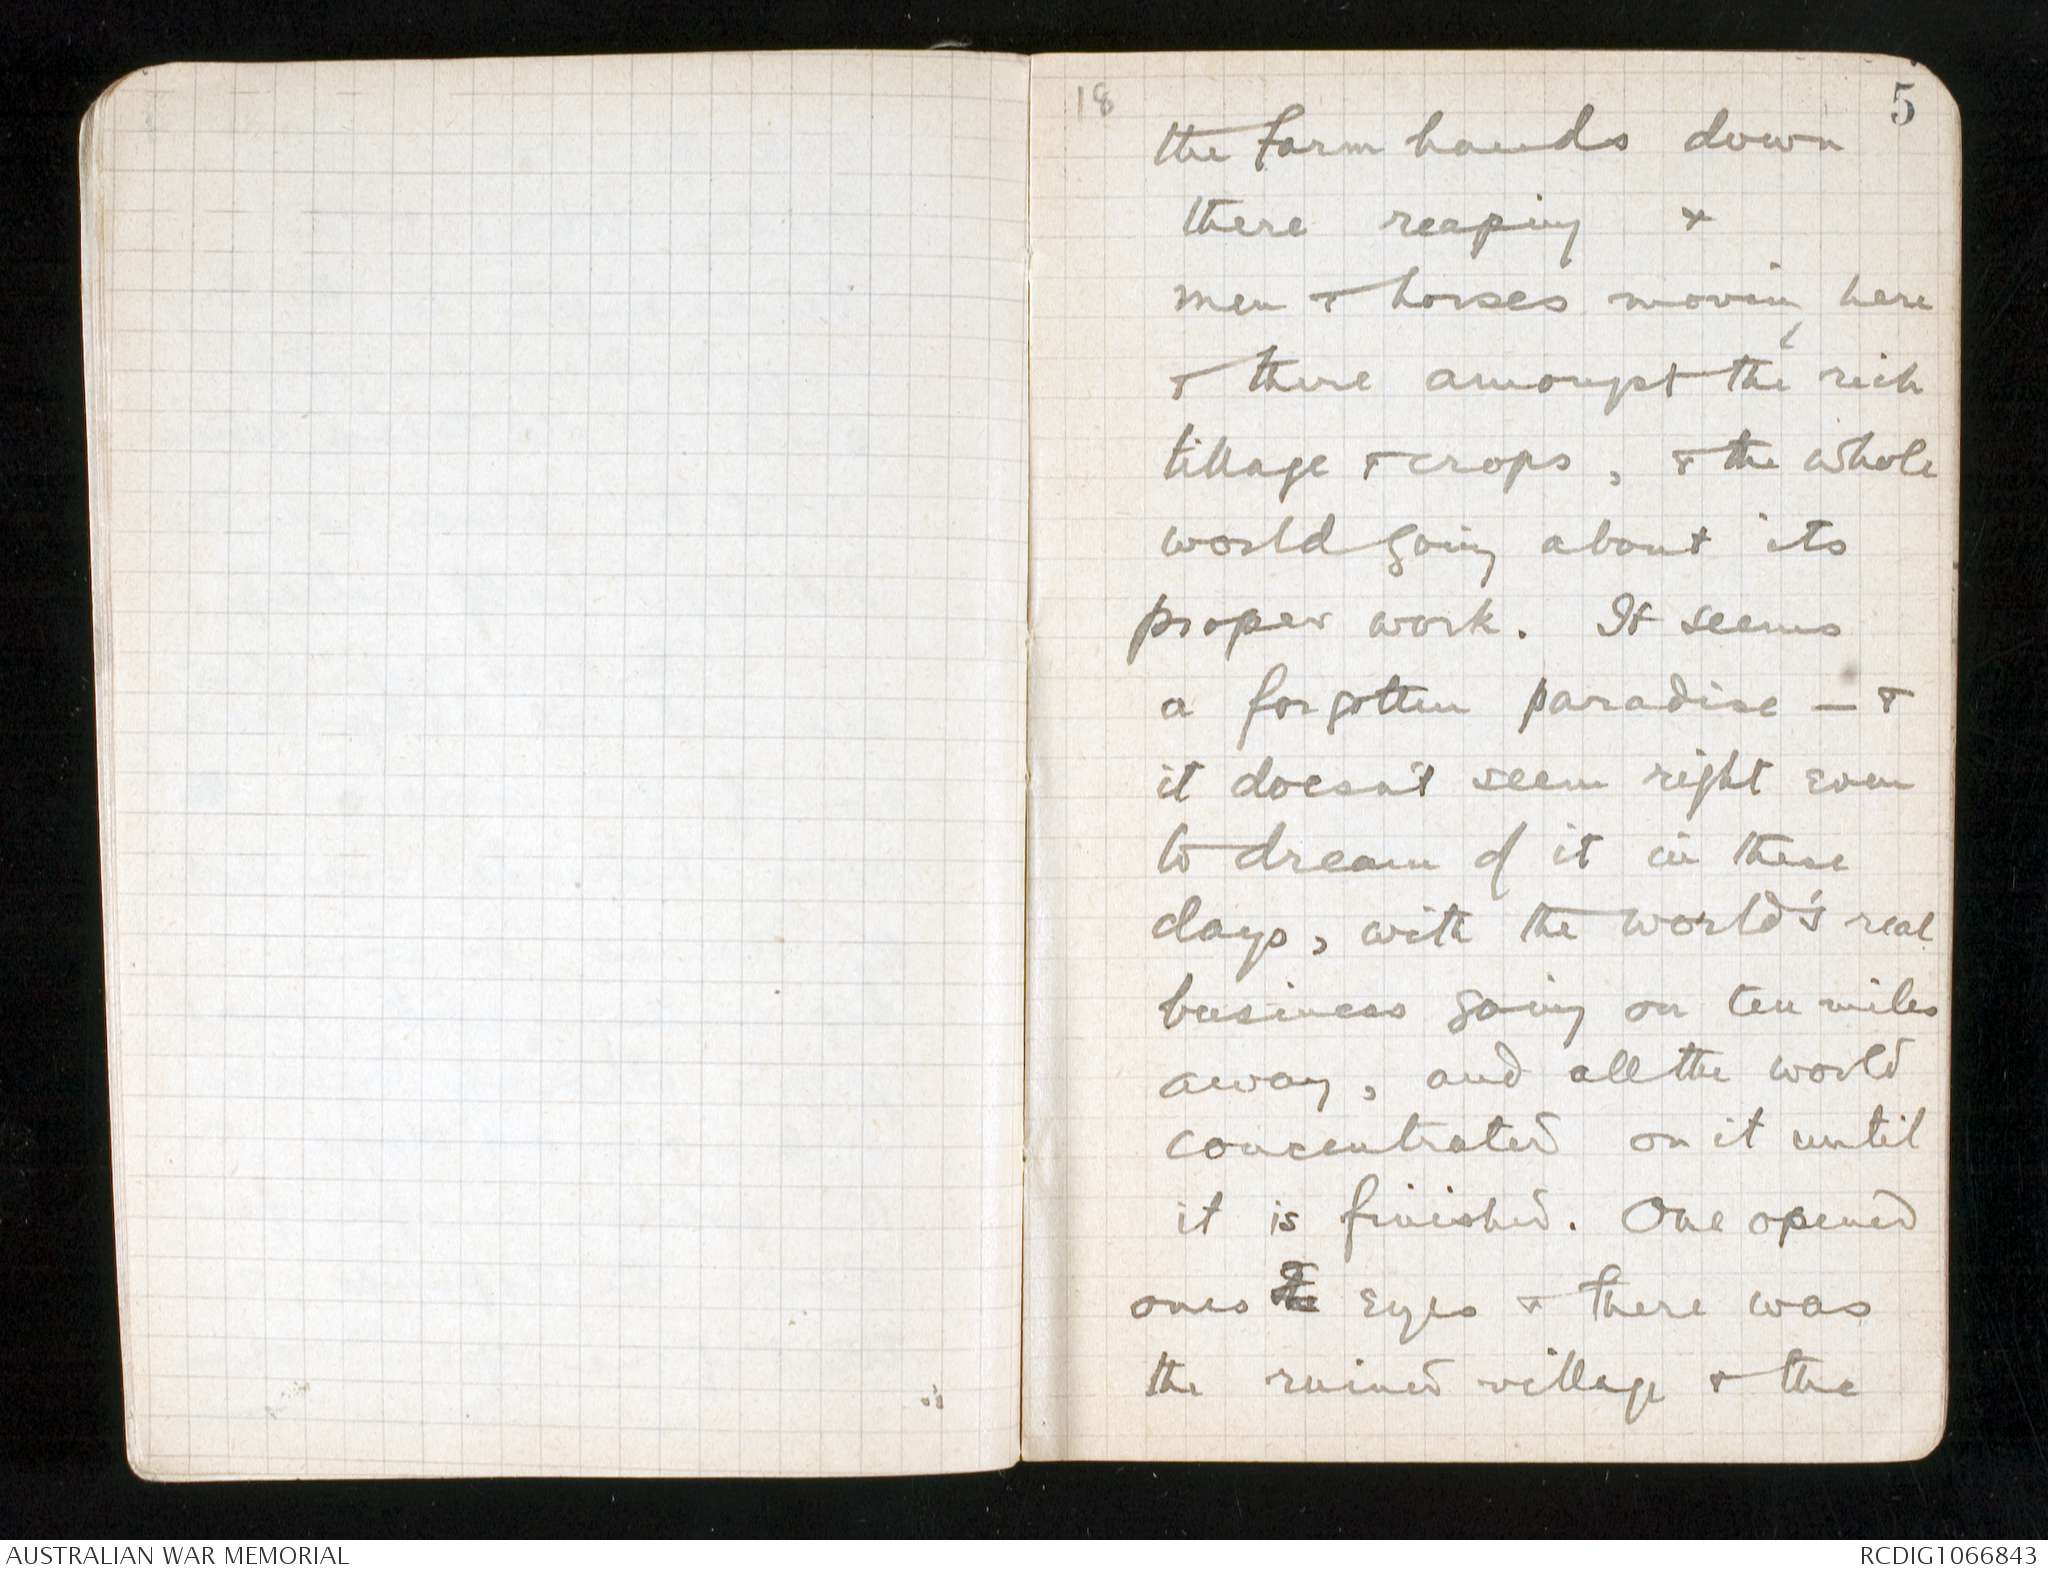 18
5
the farm hands down
there reaping &
men & horses moving here
& there amongst the rich
tillage & crops, & the whole
world going about its
proper work. It seems
a forgotten paradise — &
it doesn't seem right even
to dream of it in these
days, with the world's real
business going on ten miles
away, and all the world
concentrated on it until
it is finished. One opened
ones eyes & there was
the ruined village & the
AUSTRALIAN WAR MEMORIAL
RCDIG1066843